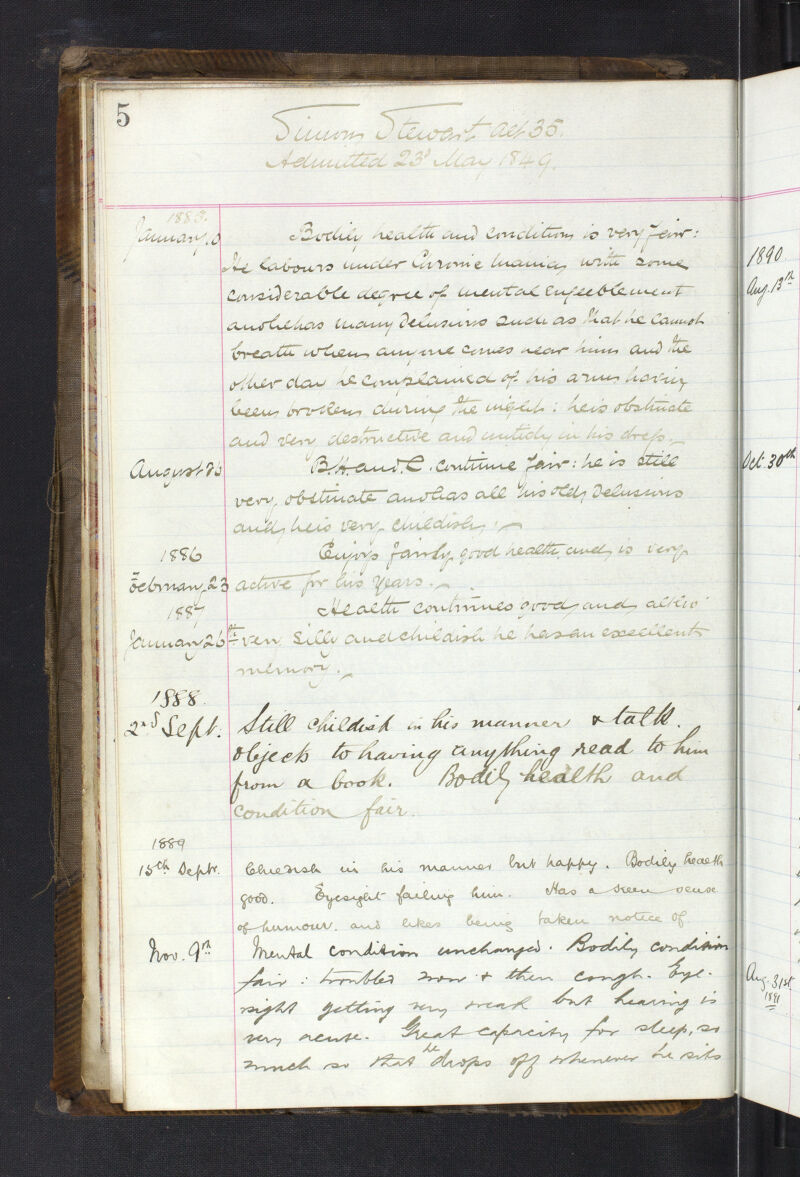 5
Simon Stewart aet 35.
Admitted 23d May 1849.
1885.
January 10
Bodily health and condition is very fair:
He labours under Chronic mania, with some
considerable degree of mental enfeeblement
and he has many delusions such as that he cannot
breath when anyone comes near him and the
other day he complained of his arms having
been broken during the night: he is obstinate
and very destructive and untidy in his dress.
August 26
B.H. and C. continue fair: he is still
very obstinate and has all his old delusions
and he is very childish.
1886
February 23
Enjoys fairly good health and is very
active for his years.
1887
January 26th
Health continues good, and altho'
very silly and childish he has an excellent
memory.
1888.
2nd Sept.
Still childish in his manner & talk.
objects to having anything read to him
from a book. Bodily health and
condition fair.
1889
15th Septr.
Childish in his manner but happy. Bodily health
good. Eyesight failing him. Has a keen sense
of humour, and likes being taken notice of
Nov. 9th
Mental condition unchanged. Bodily condition
fair: troubled now & then cough. Eye-
sight getting very weak but hearing is
very acute. Great capacity for sleep, so
much so that he drops off whenever he sits
1890.
Aug. 13th
Oct. 30th
Aug. 31st
1891